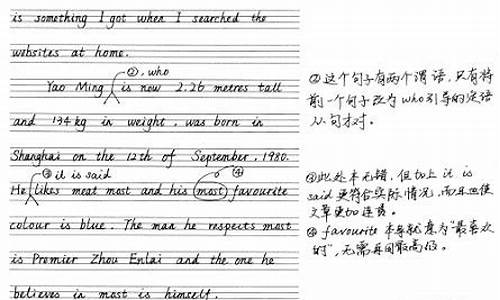 is something I got when I searched the
websites at home.
②, who
Yao Ming is now 2.26 metres tall
and 134 kg in weight, was born in
Shanghai on the 12th of September, 1980.
③ it is said ④
He likes meat most and his most favourite
colour is blue. The man he respects most
is Premier Zhou Enlai and the one he
believes in most is himself.
②这个句子有两个谓语,只有将
前一个句子改为who引导的定语
从句才对。
③此处本无错,但加上it is
said更符合实际情况,而且也使
文章更加连贯。
④ favourite本身就意为“最喜欢
的”,无需再用最高级。